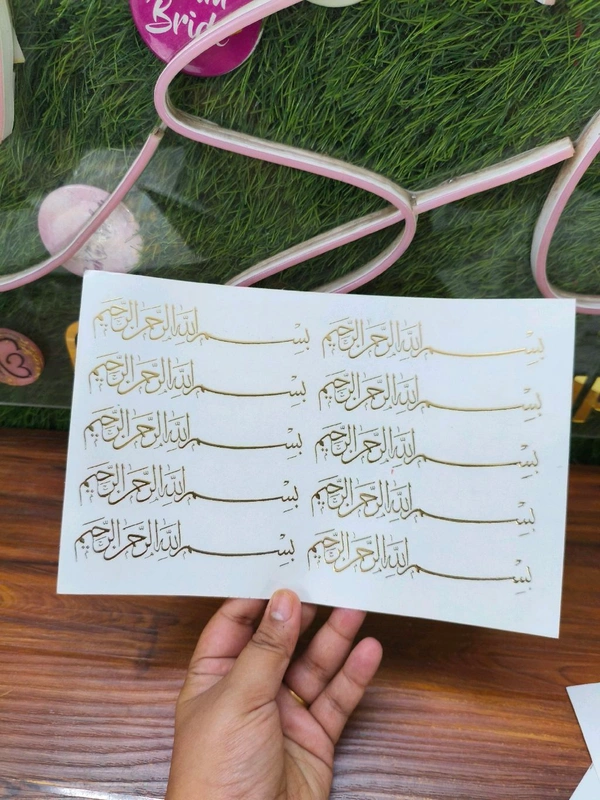 Bride
بسم الله الرحمن الرحيم بسم الله الرحمن الرحيم
بسم الله الرحمن الرحيم بسم الله الرحمن الرحيم
بسم الله الرحمن الرحيم بسم الله الرحمن الرحيم
بسم الله الرحمن الرحيم بسم الله الرحمن الرحيم
بسم الله الرحمن الرحيم بسم الله الرحمن الرحيم